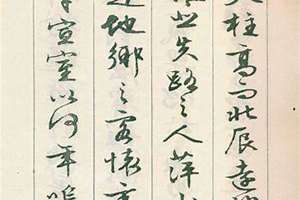 天柱高而北辰遠
悲失路之人萍水
他鄉之客懷帝
奉宣室以何年嗚